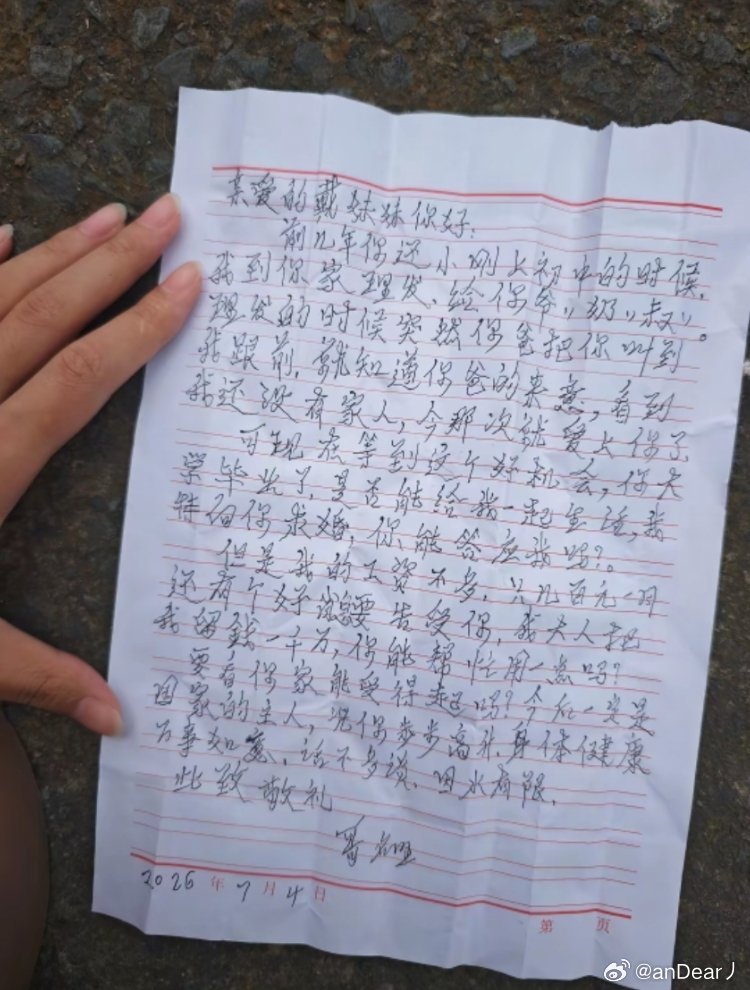 亲爱的戴妹妹你好:
前几年你还小刚上初中的时候,
我到你家理发,给你爷〃奶〃叔〃。
理发的时候突然你爸把你叫到
我跟前,就知道你爸的来意,看到
我还没有家人,今那次就爱上你了
可现在等到这个好机会,你大
学毕业了,是否能给我一起生活,我
向你求婚,你能答应我吗?。
但是我的工资不多,只几百元一月
还有个好消息要告受你,我大人把
我留钱一千万,你能帮忙用一点吗?
要看你家能受得起吗?今后一定是
国家的主人,祝你步步高升,身体健康
万事如意,话不多谈,回水有限,
此致敬礼
2026年7月4日
第 页
@anDear丿